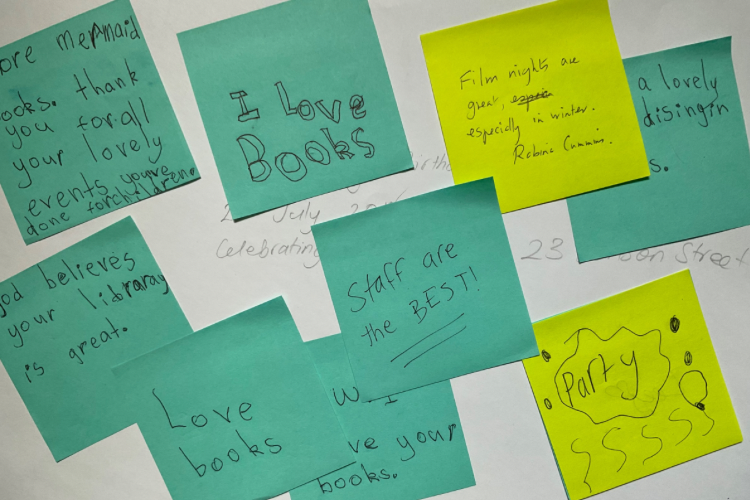 ore mermaid
ooks. thank
you for all
your lovely
events you've
done for children.
I Love
Books
Film nights are
great
especially in winter.
Robina Cummins.
a lovely
disingin
s.
July
Celebrating
23
Street
Staff are
the BEST!
god believes
your libraray
is great.
Love
books
W I
ve your
books.
Party